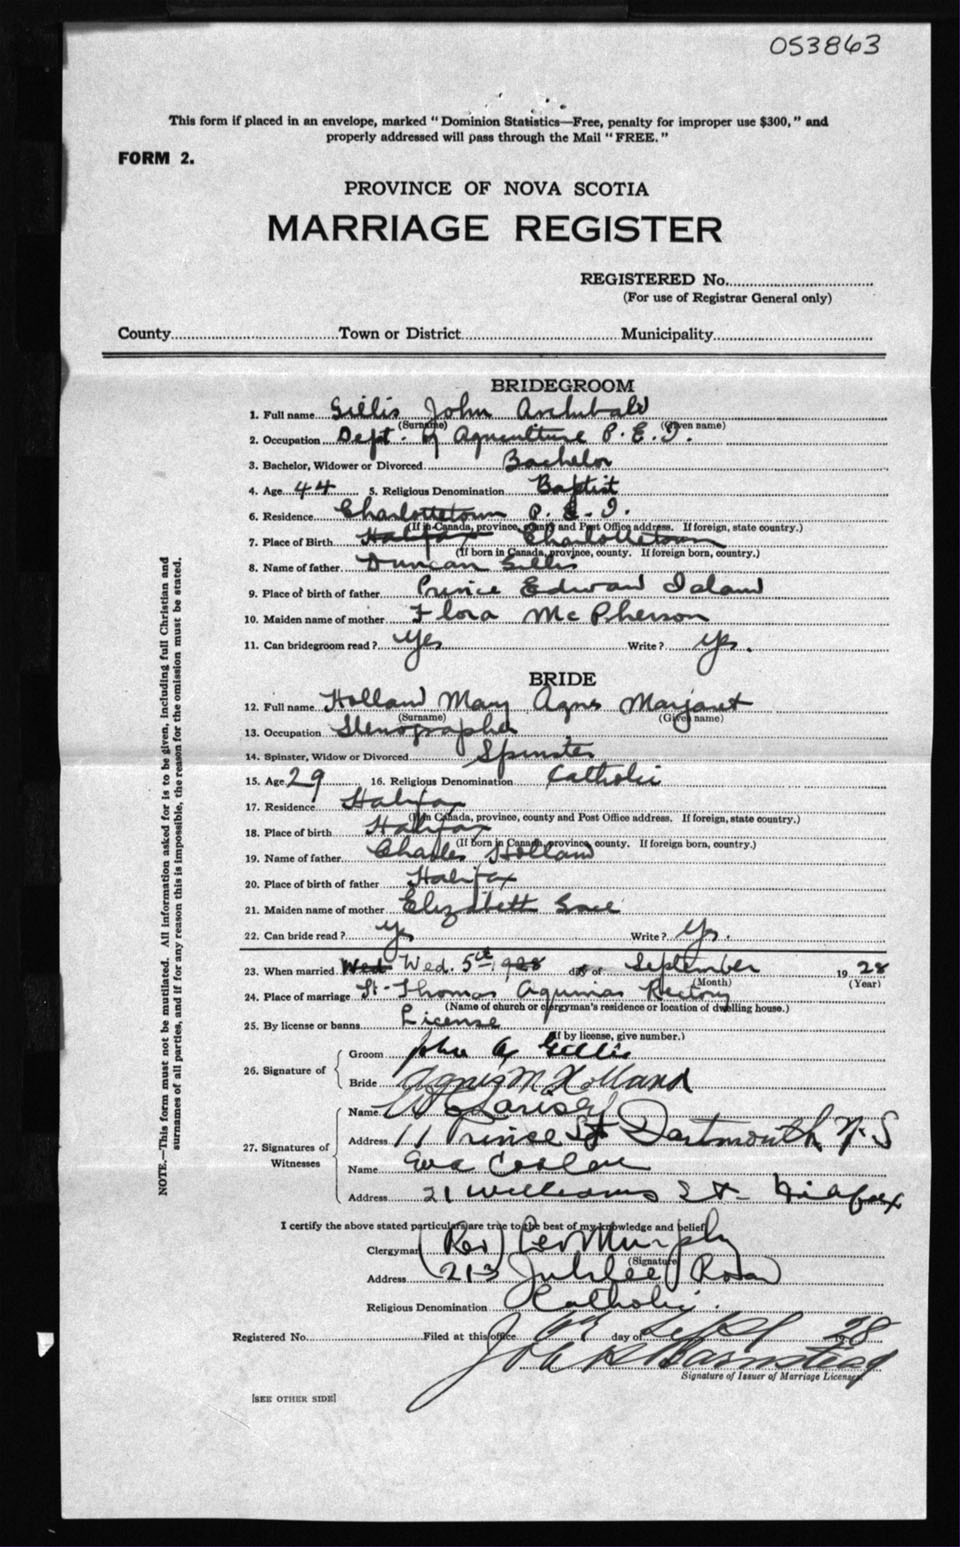 053863
This form if placed in an envelope, marked "Dominion Statistics—Free, penalty for improper use $300," and
properly addressed will pass through the Mail "FREE."
FORM 2.
PROVINCE OF NOVA SCOTIA
MARRIAGE REGISTER
REGISTERED No.
(For use of Registrar General only)
County Town or District Municipality
BRIDEGROOM
1. Full name Gillis John Archibald
(Surname) (Given name)
2. Occupation Dept. of Agriculture P. E. I.
3. Bachelor, Widower or Divorced Bachelor
4. Age 44 5. Religious Denomination Baptist
6. Residence Charlottetown P. E. I.
(If in Canada, province, county and Post Office address. If foreign, state country.)
7. Place of Birth Halifax Charlottetown
(If born in Canada, province, county. If foreign born, country.)
8. Name of father Duncan Gillis
9. Place of birth of father Prince Edward Island
10. Maiden name of mother Flora McPherson
11. Can bridegroom read? Yes Write? Yes.
BRIDE
12. Full name Holland Mary Agnes Margaret
(Surname) (Given name)
13. Occupation Stenographer
14. Spinster, Widow or Divorced Spinster
15. Age 29 16. Religious Denomination Catholic
17. Residence Halifax
(If in Canada, province, county and Post Office address. If foreign, state country.)
18. Place of birth Halifax
(If born in Canada, province, county. If foreign born, country.)
19. Name of father Charles Holland
20. Place of birth of father Halifax
21. Maiden name of mother Elizabeth
22. Can bride read? Yes Write? Yes.
23. When married Wed Wed. 5th 1928 day of September 1928
(Month) (Year)
24. Place of marriage St. Thomas Aquinas Rectory
(Name of church or clergyman's residence or location of dwelling house.)
25. By license or banns License
(If by license, give number.)
26. Signature of
Groom John A Gillis
Bride Agnes M. Holland
27. Signatures of
Witnesses
Name
Address 11 Prince St Dartmouth N. S
Name Eva
Address 21 Williams St. Halifax
I certify the above stated particulars are true to the best of my knowledge and belief
Clergyman (Rev) Murphy
(Signature)
Address 213 Jubilee Road
Religious Denomination Catholic.
Registered No. Filed at this office 6th day of Sept 1928
Signature of Issuer of Marriage License.
[SEE OTHER SIDE]
NOTE.—This form must not be mutilated. All information asked for is to be given, including full Christian and
surnames of all parties, and if for any reason this is impossible, the reason for the omission must be stated.